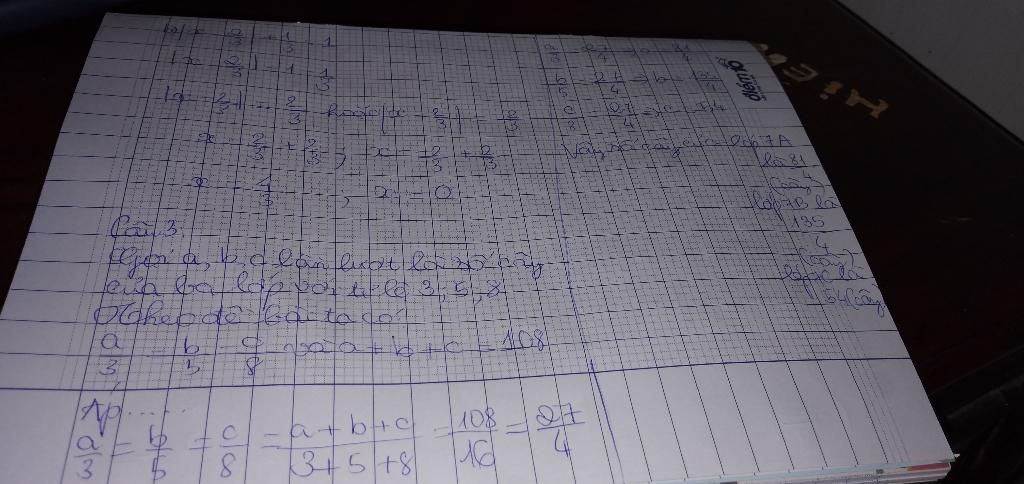 b) |x - 2/3| + 1/3 = 1
|x - 2/3| = 1 - 1/3
|x - 2/3| = 2/3 hoặc |x - 2/3| = -2/3
x = 2/3 + 2/3 ; x = -2/3 + 2/3
x = 4/3 , x = 0
Câu 3
Gọi a, b, c lần lượt là số cây
của ba lớp với tỉ lệ 3, 5, 8
Theo đề bài ta có:
a/3 = b/5 = c/8 và a + b + c = 108
Áp .....
a/3 = b/5 = c/8 = a+b+c/3+5+8 = 108/16 = 27/4
a/3 = 27/4 => a = 81/4
b/5 = 27/4 => b = 135/4
c/8 = 27/4 => c = 54
Vậy số cây của lớp 7A
là 81/4
(cây)
lớp 7B là
135/4
(cây)
lớp 7C là
54 (cây)
điểm 10